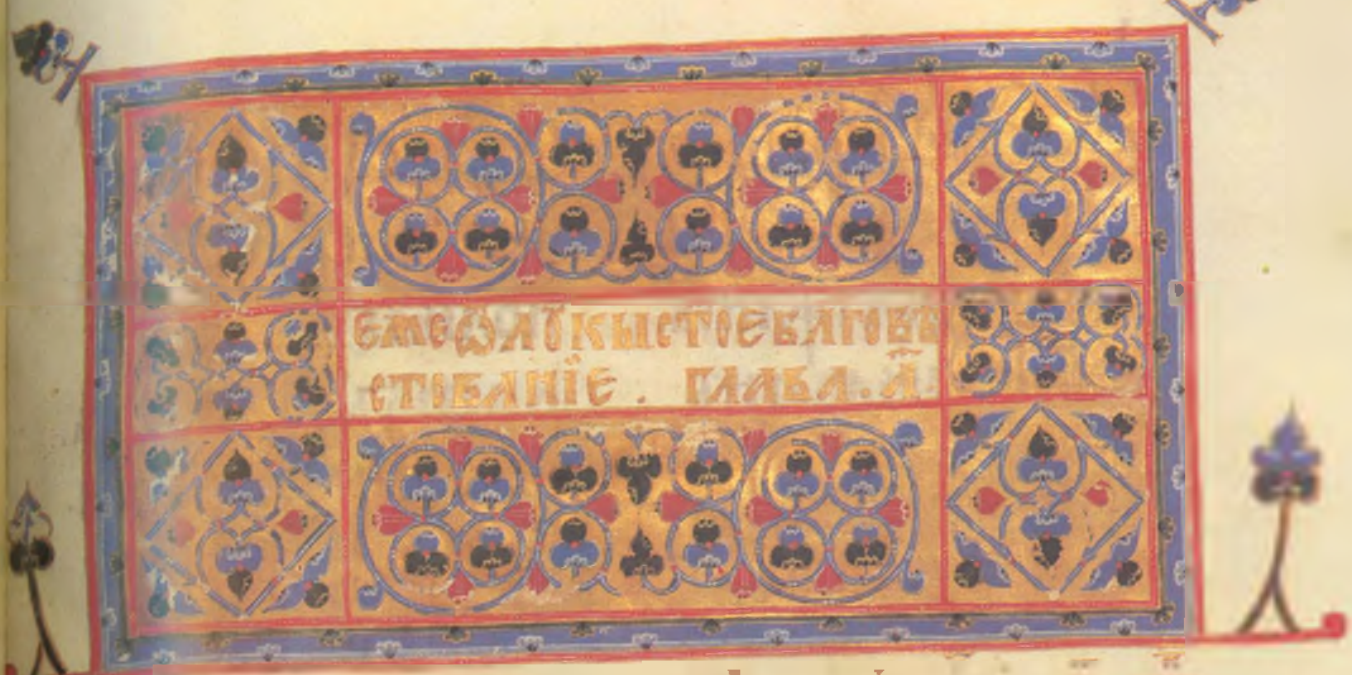 ЕЖЕѾЛꙊКЫСТОЕБЛАГОВѢ
СТІВАНЇЕ . ГЛАВА.А҃.